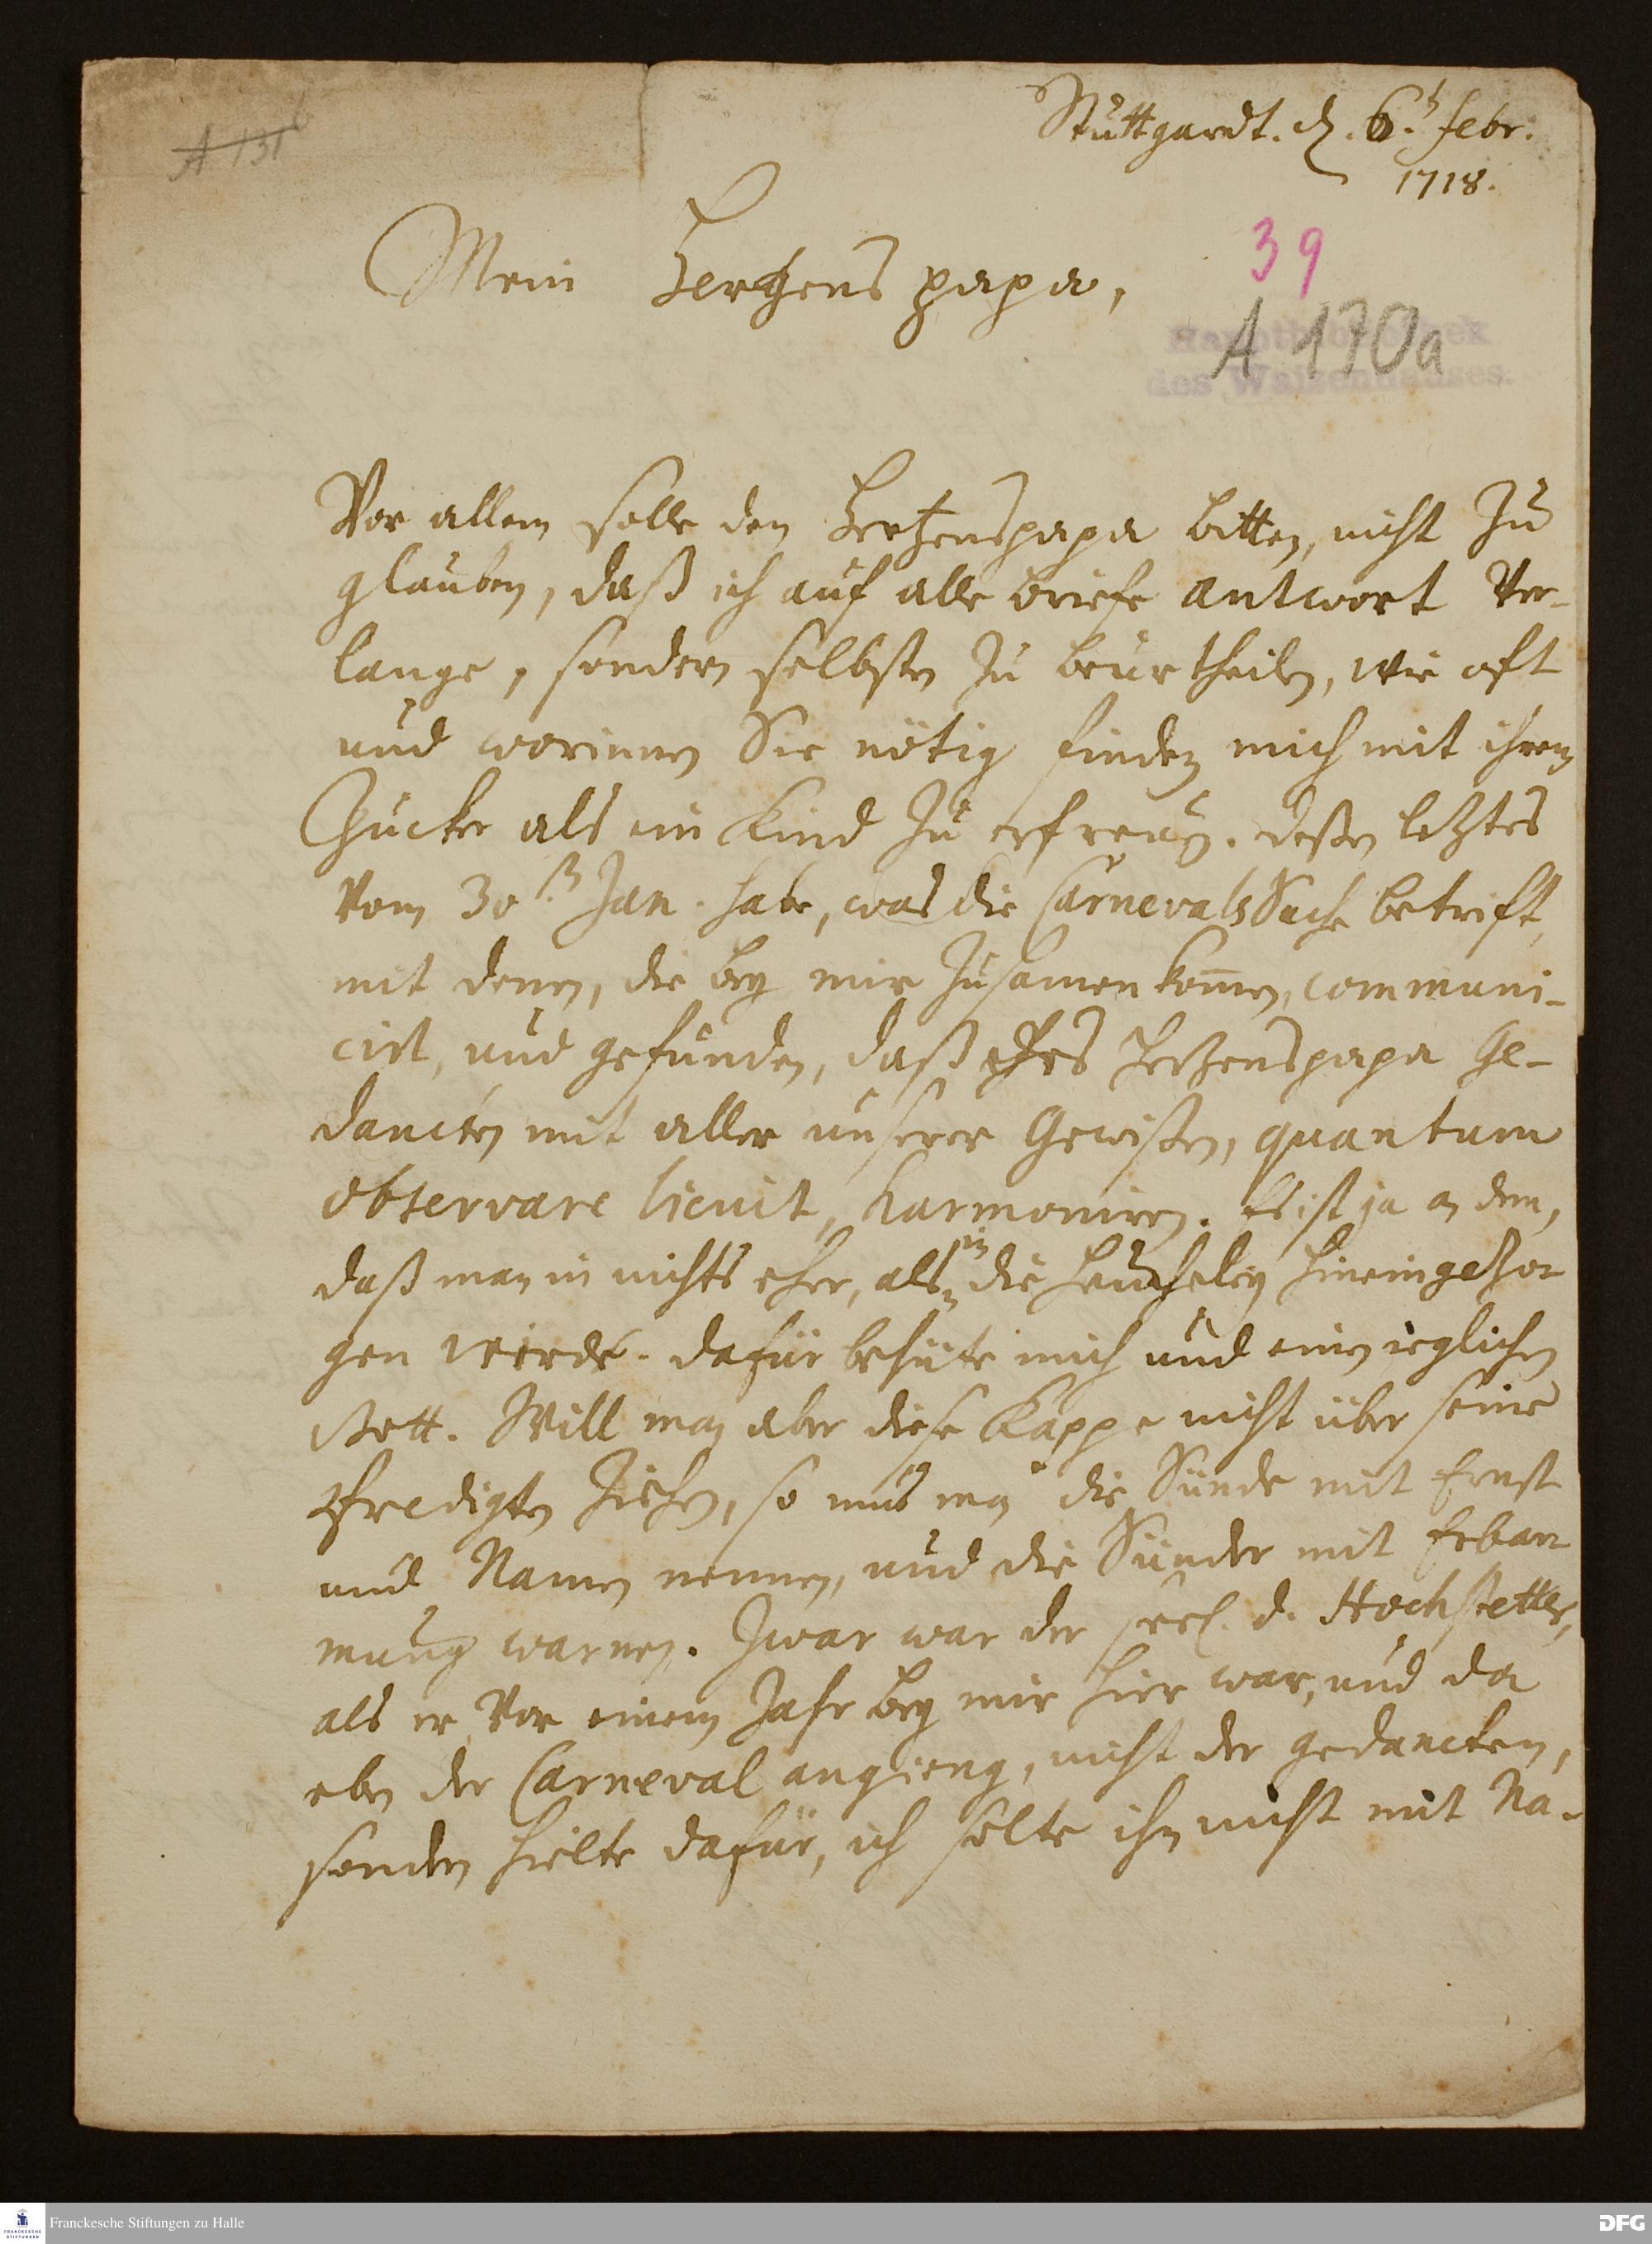 A 131 b
Stuttgardt. d. 6.t febr.
1718.
Mein Hertzens papa,
39
A 170a
Hauptbibliothek
des Waisenhauses.
Vor allem solle den Hertzenspapa bitten, nicht zu
glauben, daß ich auf alle briefe antwort ver-
lange, sondern selbsten zu beurtheilen, wie oft
und worinnen Sie nötig finden mich mit ihrem
Zucker als ein Kind zu erfreuen. deßen letztes
vom 30.st Jan. habe, was die CarnevalsSache betrift,
mit denen, die bey mir zusamen kom̄en, communi-
cirt, und gefunden, daß Hertzenspapa Ge-
dancken mit aller unserer Gewißen, quantum
observare licuit, harmoniren. Es ist ja an dem,
daß man in nichts eher, als in die heucheley hineingezo-
gen wird. dafür behüte mich und einen ieglichen
Gott. Will man aber diese Kappe nicht über seine
predigten ziehen, so mus man die Sünde mit Ernst
und Namen nennen, und die Sünder mit Erbar-
mung warnen. Zwar war der seel. d. Hochstetter,
als er vor einem Jahr bey mir hier war, und da
eben der Carneval angieng, nicht der gedancken,
sondern hielte dafür, ich solte ihn nicht mit Na-
Franckesche Stiftungen zu Halle
FRANCKESCHE
STIFTUNGEN
DFG